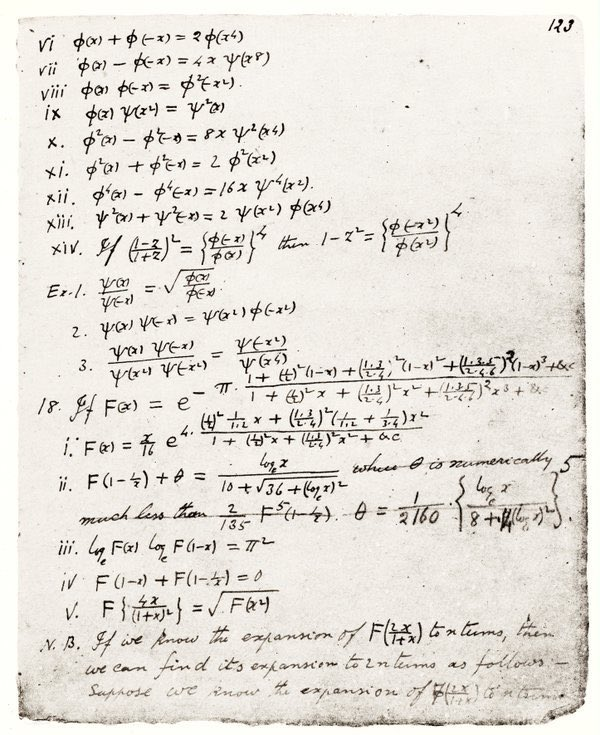 123
vi φ(x) + φ(-x) = 2φ(x⁴)
vii φ(x) - φ(-x) = 4x ψ(x⁸)
viii φ(x) φ(-x) = φ²(-x²).
ix φ(x) ψ(x²) = ψ²(x)
x. φ²(x) - φ²(-x) = 8x ψ²(x⁴)
xi. φ²(x) + φ²(-x) = 2 φ²(x²)
xii. φ⁴(x) - φ⁴(-x) = 16x ψ⁴(x²).
xiii. ψ²(x) + ψ²(-x) = 2 ψ(x²) φ(x⁴)
xiv. If ((1-z)/(1+z))² = {φ(-x)/φ(x)}⁴ then 1-z² = {φ(-x²)/φ(x²)}⁴
Ex.1. ψ(x)/ψ(-x) = √(φ(x)/φ(-x))
2. ψ(x) ψ(-x) = ψ(x²) φ(-x²)
3. ψ(x) ψ(-x)/(ψ(x²) ψ(-x²)) = ψ(-x²)/ψ(x⁴)
18. If F(x) = e^(-π · (1 + (½)²(1-x) + (1·3/2·4)²(1-x)² + (1·3·5/2·4·6)²(1-x)³ + &c)/(1 + (½)²x + (1·3/2·4)²x² + (1·3·5/2·4·6)²x³ + &c))
i. F(x) = x/16 e^(4 · ((½)² 1/1·2 x + (1·3/2·4)²(1/1·2 + 1/3·4)x²)/(1 + (½)²x + (1·3/2·4)²x² + &c))
ii. F(1-1/x) + θ = logₑx/(10 + √(36 + (logₑx)²)) where θ is numerically
much less than 2/135 F⁵(1-1/x). θ = 1/2160 · {logₑx/(8+(logₑx)²)}⁵.
iii. logₑ F(x) logₑ F(1-x) = π²
iv F(1-x) + F(1-1/x) = 0
v. F{4x/(1+x)²} = √F(x²)
N.B. If we know the expansion of F(2x/(1+x)) to n terms, then
we can find its expansion to 2n terms as follows —
Suppose we know the expansion of F(2x/(1+x)) to n terms